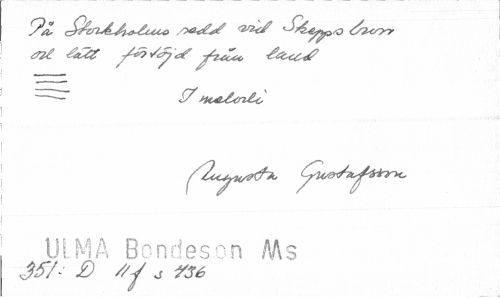 På Stockholms redd vid Skeppsbron
och lätt förtöjd från land
I melodi
Augusta Gustafsson
ULMA Bondeson Ms
351: D 11 f s 436